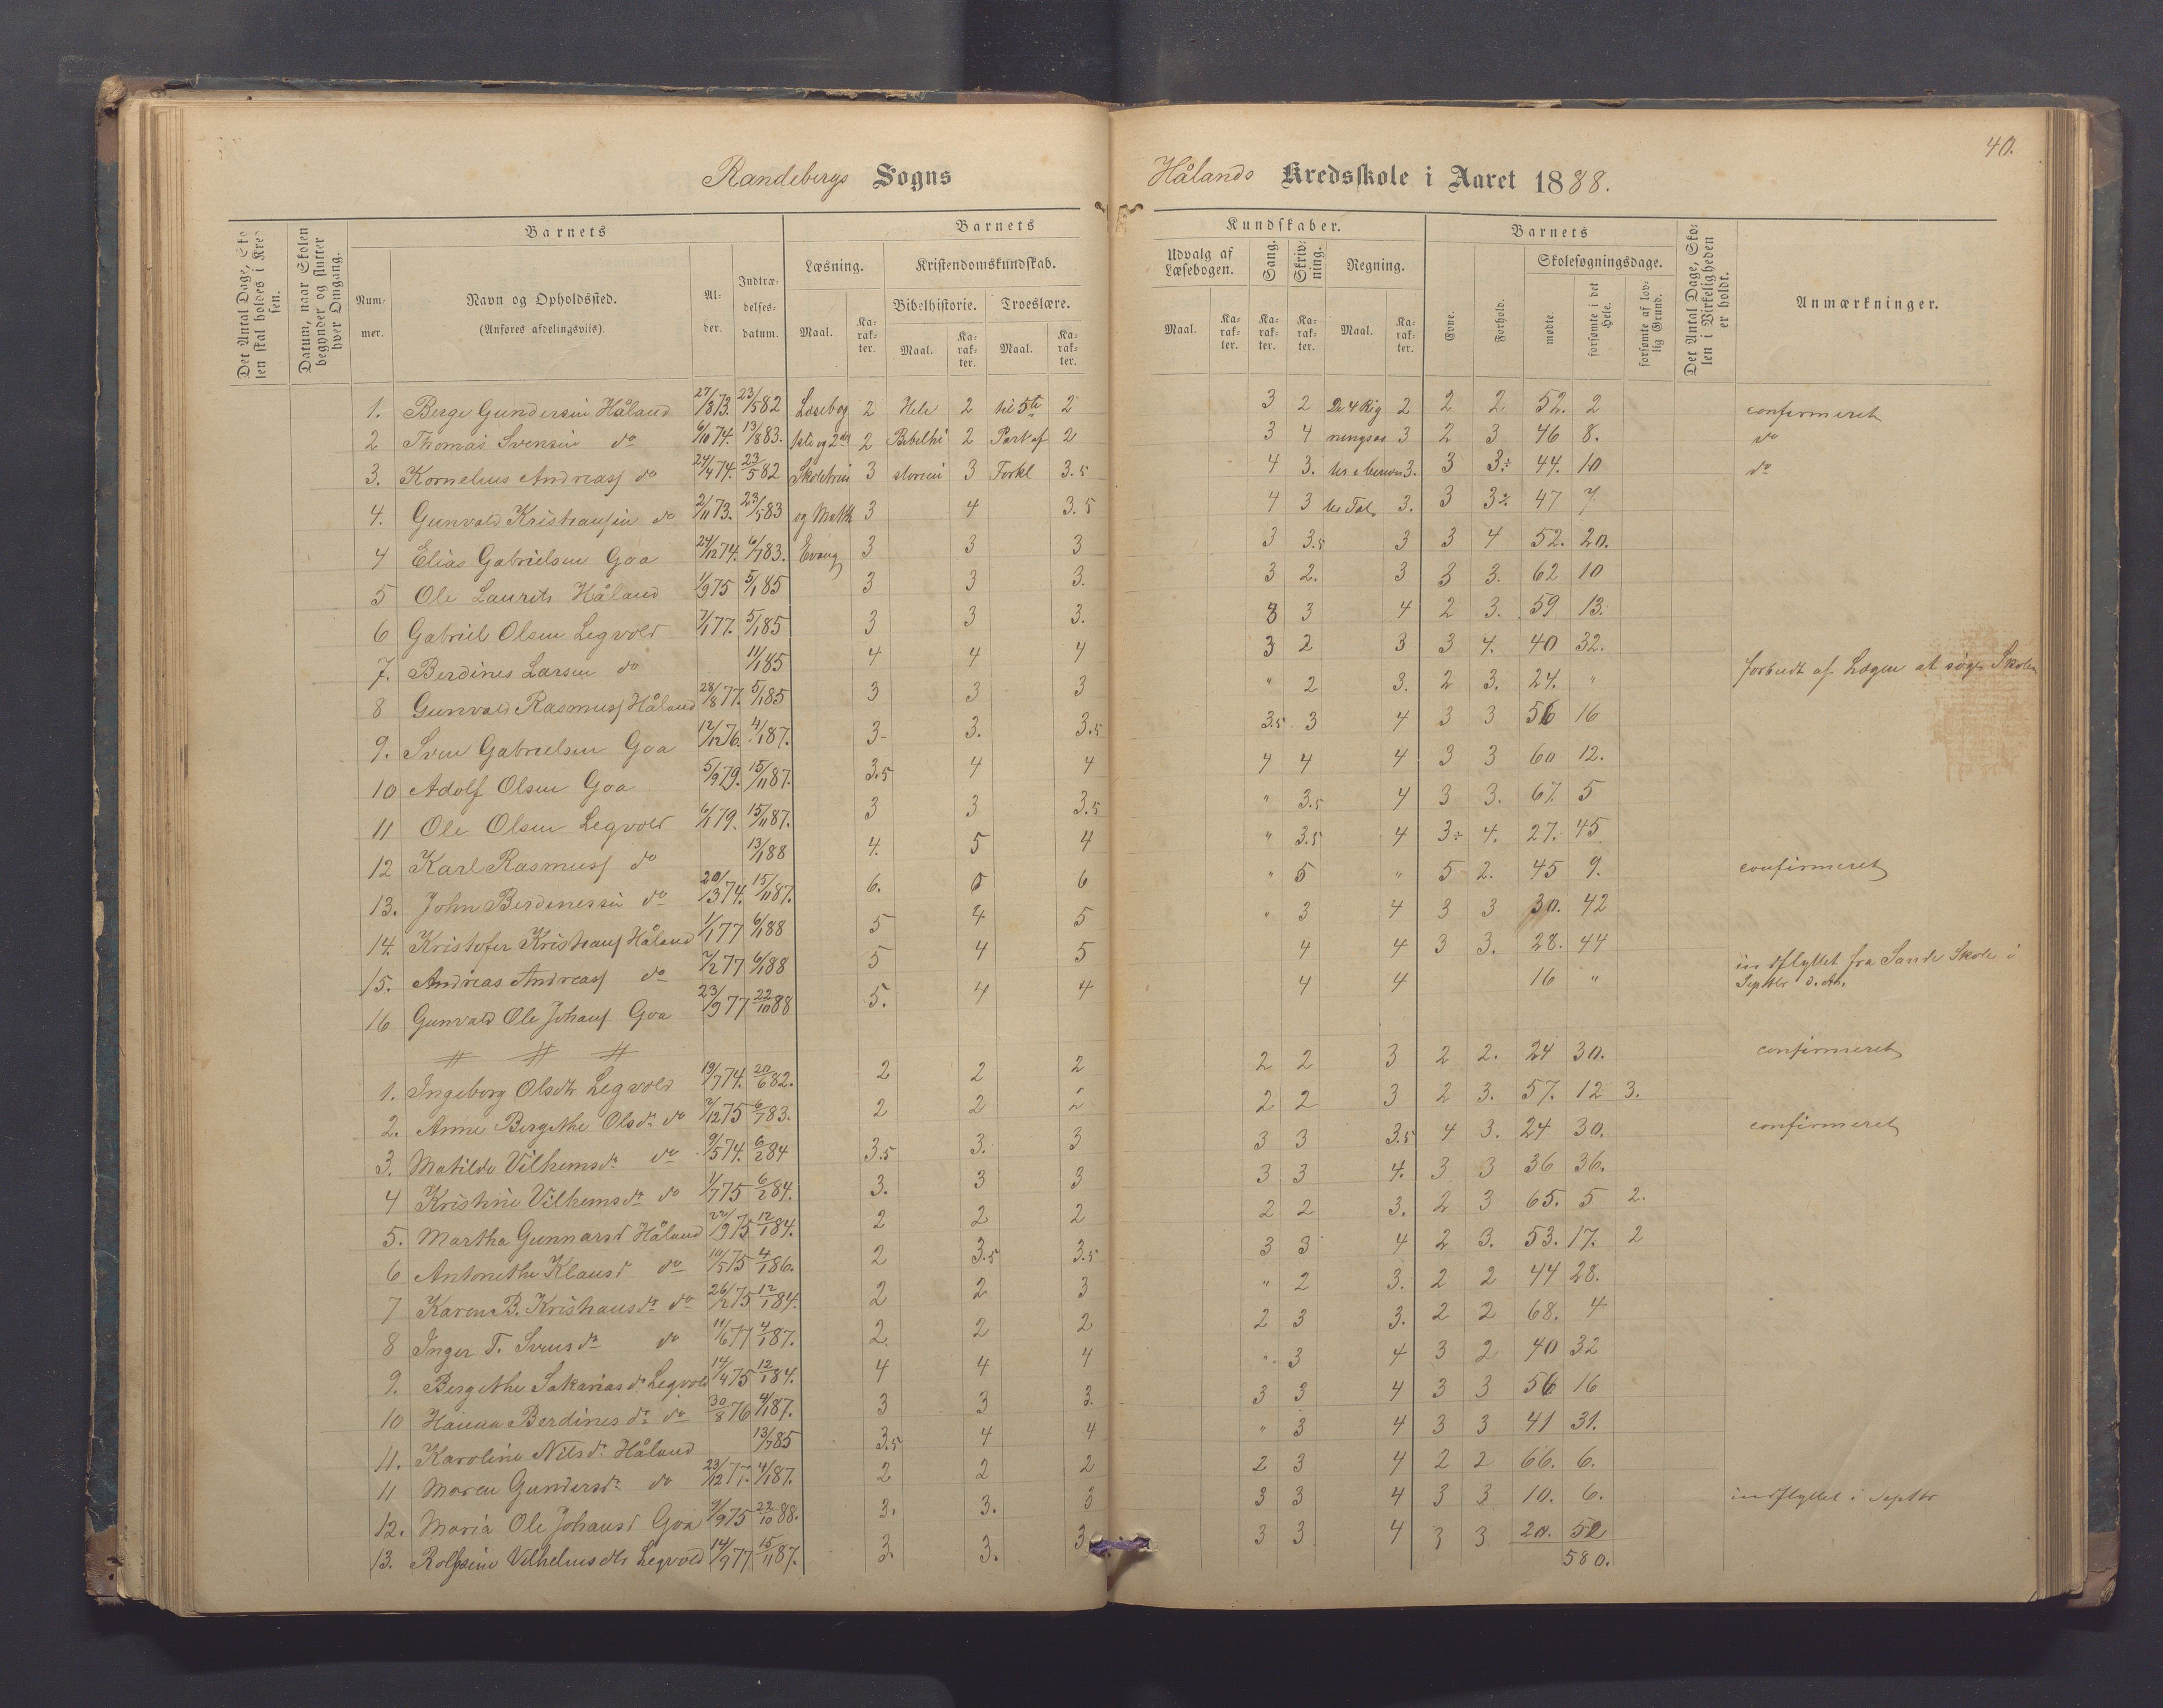 40.
Randebergs Sogns Hålands Kredsskole i Aaret 1888.
Det Antal Dage, Skolen skal holdes i Kredsen.
Datum, naar Skolen begynder og slutter hver Omgang.
Barnets
Nummer.
Navn og Opholdssted.
(Anføres afdelingsvis).
Alder.
Indtrædelsesdatum.
Barnets Kundskaber.
Læsning.
Maal. Karakter.
Kristendomskundskab.
Bibelhistorie. Troeslære.
Maal. Karakter. Maal. Karakter.
Udvalg af Læsebogen.
Maal. Karakter.
Sang. Karakter.
Skrivning. Karakter.
Regning.
Maal. Karakter.
Barnets
Evne. Forhold.
Skolesøgningsdage.
mødte. forsømte i det Hele. forsømte af lovlig Grund.
Det Antal Dage, Skolen i Virkeligheden er holdt.
Anmærkninger.
1. Berge Gundersen Håland 27/8 73. 23/5 82 Læsebog 2 Hele 2 til 5te 2 3 2 De 4 Reg 2 2 2 52. 2 confirmeret
2 Thomas Svensen do 6/10 74. 13/8 83. 1ste og 2det 2 Bibelhi 2 Part af 2 3 4 ningsar 3 2 3 46 8. do
3. Kornelius Andreass do 24/4 74. 23/5 82 Skoletrin 3 storien 3 Forkl 3.5 4 3. 3. 3 3÷ 44. 10 do
4. Gunvald Kristiansen do 2/11 73. 23/5 83 og Matth 3 4 3.5 4 3 Tal. 3. 3 3÷ 47 7
4 Elias Gabrielsen Goa 24/12 74. 6/7 83. Evang 3 3 3 3 3.5 3 3 4 52. 20.
5 Ole Laurits Håland 1/9 75 5/1 85 3 3 3. 3 2. 3 3 3. 62 10
6 Gabriel Olsen Legvold 7/1 77. 5/1 85 3 3 3. 3 3 4 2 3. 59 13.
7. Berdines Larsen do 11/1 85 4 4 4 3 2 3 3 4. 40 32.
8 Gunvald Rasmuss Håland 28/8 77. 5/1 85 3 3 3 " 2 3. 2 3. 24. " forbudt af Lægen at søge Skolen
9. Sven Gabrielsen Goa 12/12 76. 4/1 87. 3 3. 3.5 3.5 3 4 3 3 56 16
10 Adolf Olsen Goa 5/9 79. 15/11 87. 3.5 4 4 4 4 4 3 3 60 12.
11 Ole Olsen Legvold 6/1 79. 15/11 87. 3 3 3.5 " 3.5 4 3 3. 67. 5
12 Karl Rasmuss do 13/1 88 4. 5 4 " 3.5 4 3÷ 4. 27. 45
13. John Berdinessen do 20/3 74. 15/11 87. 6. 5 6 " 5 " 5 2. 45 9. confirmeret
14. Kristofer Kristians Håland 1/1 77 6/1 88 5 4 5 " 3 4 3 3 30. 42
15. Andreas Andreass do 7/2 77 6/1 88 5 4 5 4 4 3 3. 28. 44
16 Gunvald Ole Johans Goa 23/9 77 22/10 88 5. 4 4 4 4 16 " indflyttet fra Sande Skole i
Septbr d. A.
# # #
1. Ingeborg Olsdtr Legvold 19/7 74. 20/6 82. 2 2 2 2 2 3 2 2. 24 30. confirmeret
2. Anne Bergithe Olsdr do 2/12 75 6/7 83. 2 2 2 2 2 3 2 3. 57. 12 3.
3. Matilde Vilhemsdr do 9/5 74. 6/2 84 3.5 3. 3 3 3 3.5 4 3. 24 30. confirmeret
4 Kristine Vilhemsdr do 1/7 75 6/2 84. 3. 3 3 3 3 4. 3 3 36 36.
5. Martha Gunnarsd Håland 22/9 75 12/1 84. 2 2 2 2 2 3. 2 3 65. 5 2.
6 Antonethe Klausd do 10/5 75 4/1 86. 2 3.5 3.5 3 3 4 2 3. 53. 17. 2
7 Karen B. Kristiansdr do 26/2 75 12/1 84. 2 2 3 " 2 3. 2 2 44 28.
8 Inger T. Svensdr do 11/6 77 4/1 87. 2. 2 2 2 3 3. 2 2 68. 4
9. Bergithe Sakariasdr Legvold 14/4 75 12/1 84. 4 4 4 " 3 4 3 2 40 32
10 Hanna Berdinesdr do 30/8 76 4/1 87. 3 3 3. 3 3 4 3 3 56 16
11. Karoline Nilsdr Håland 13/7 85 3.5 4 4 " 3 4 3 3 41 31.
11 Maren Gundersdr do 23/12 77. 4/1 87. 2 2 2 2 3 4 2 2 66. 6.
12. Maria Ole Johansd Goa 9/9 75 22/10 88. 3. 3. 3 3 3 4 3 3 10. 6. indflyttet i Septbr
13. Rolfsine Vilhelmsdtr Legvold 14/9 77 15/11 87. 3. 3. 3. 3 3 4 3 3 20. 52
580.